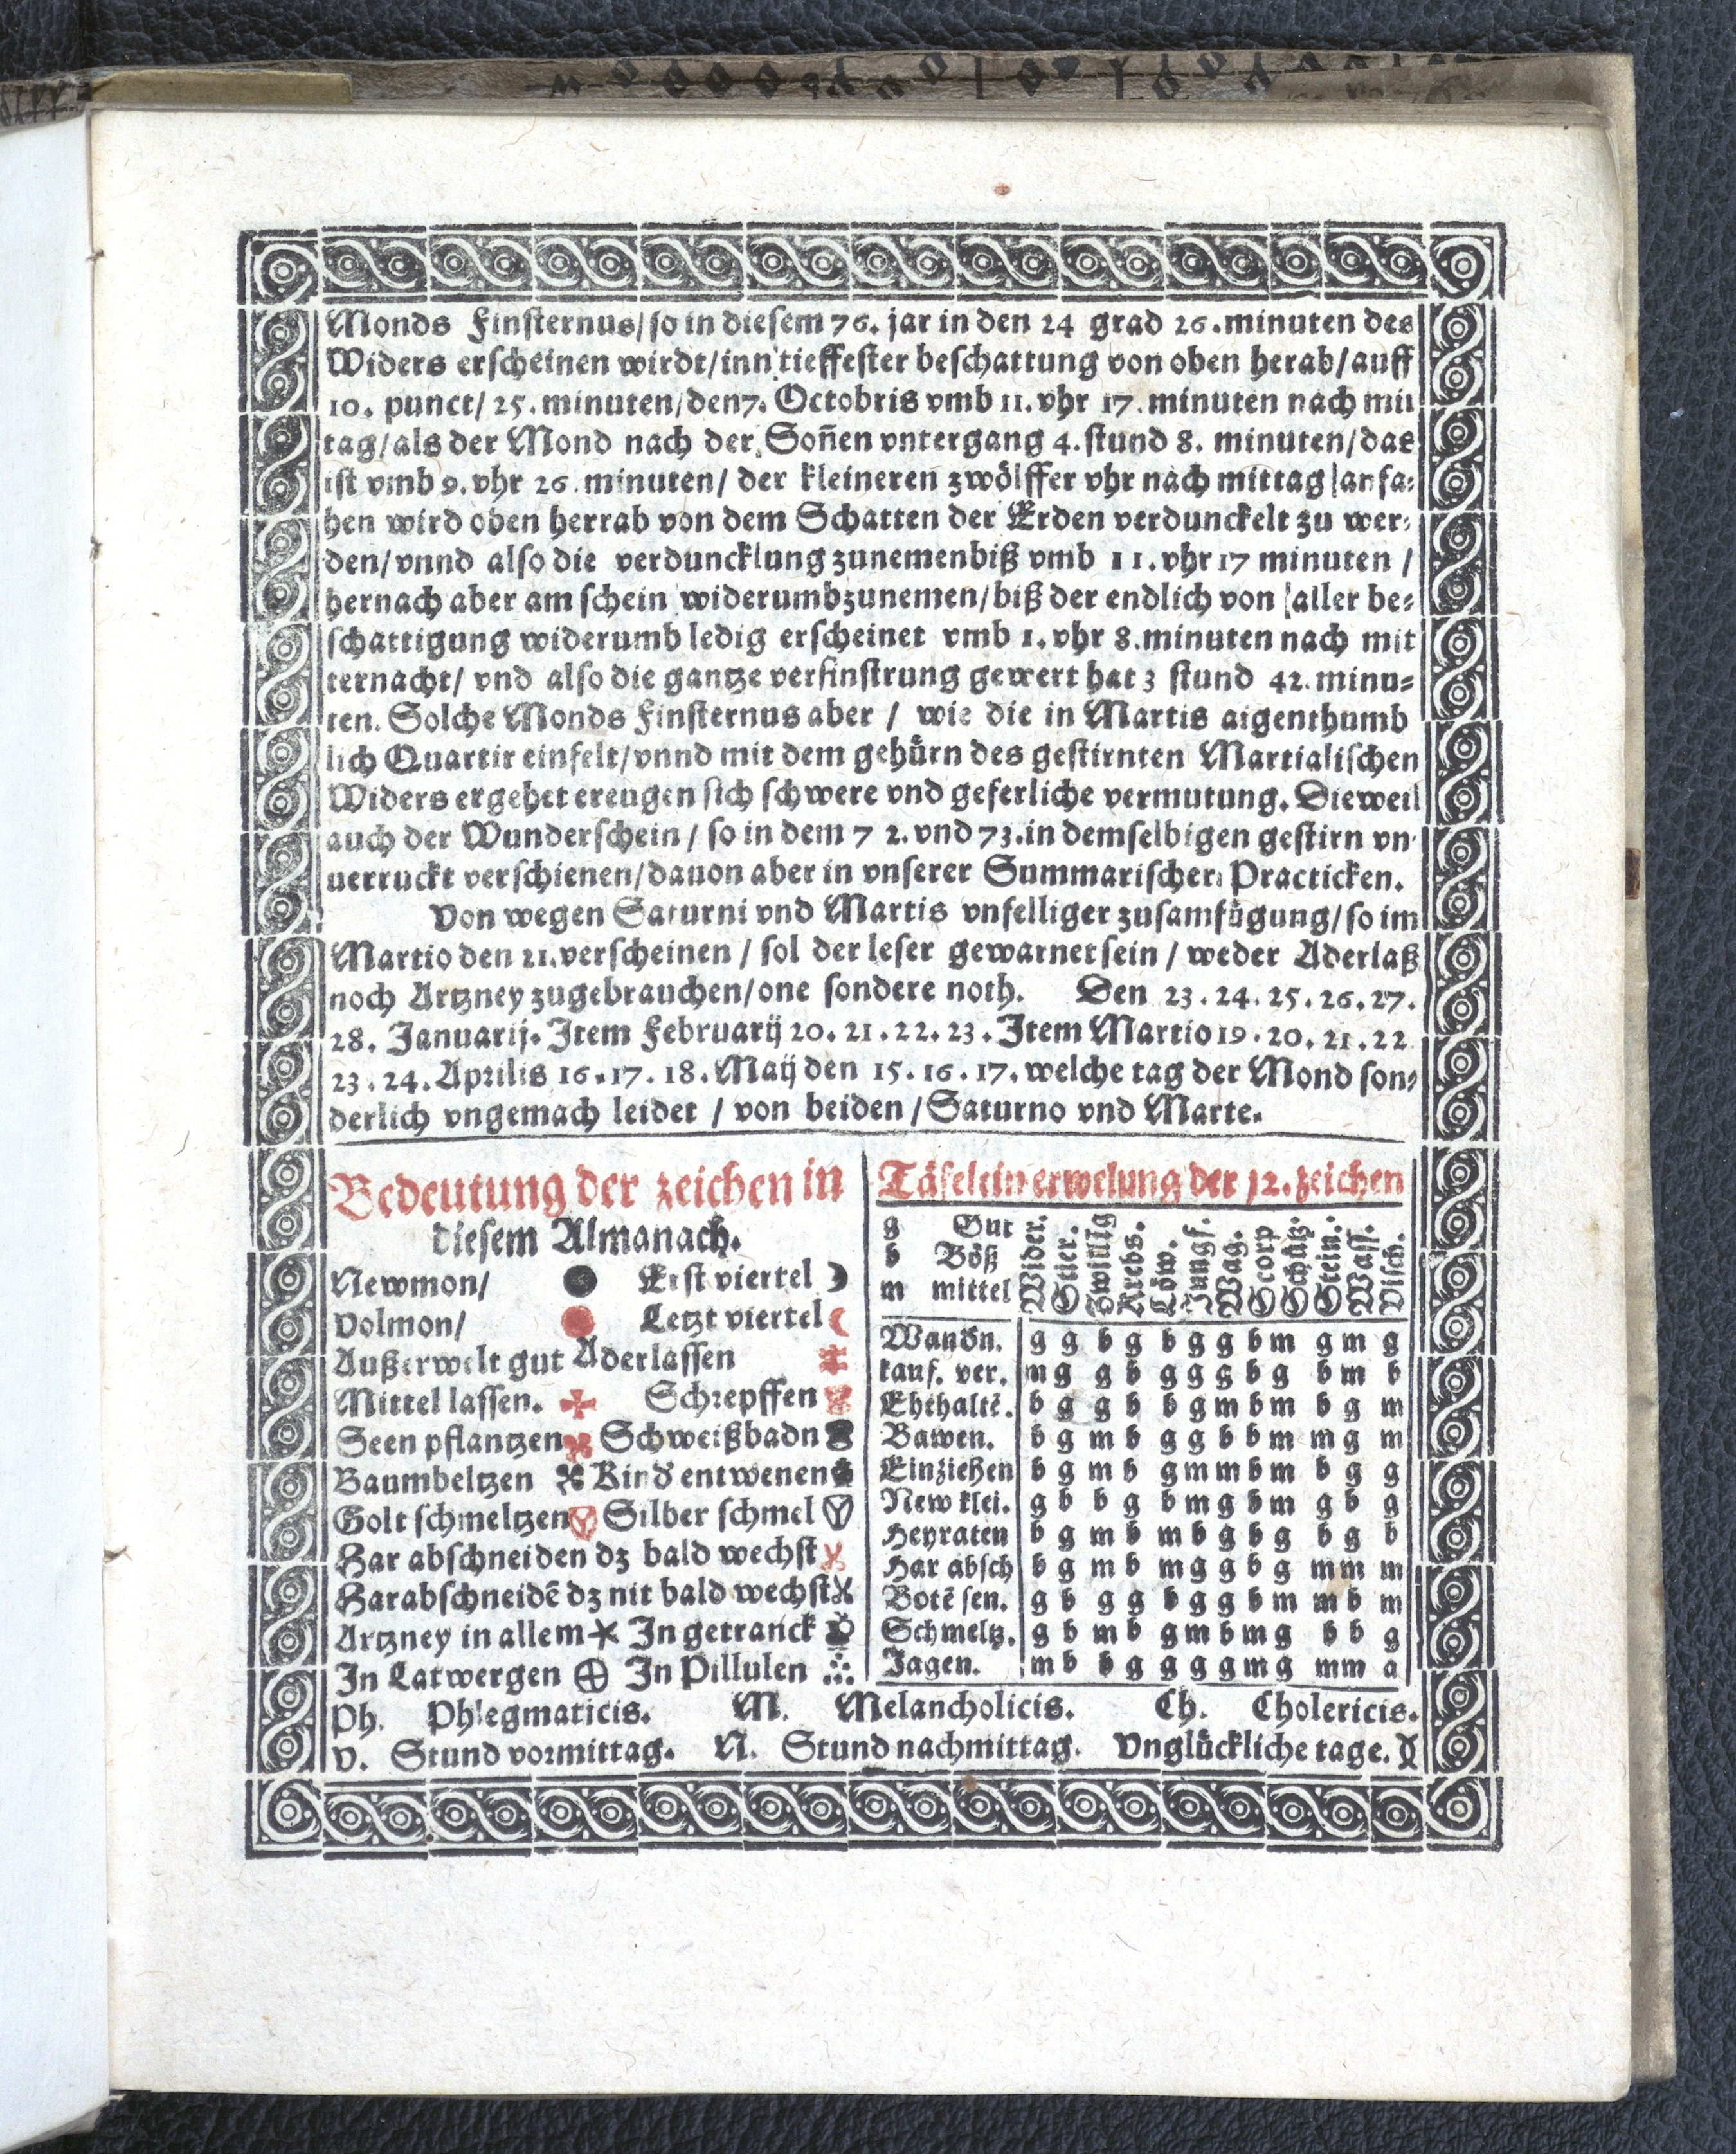 Monds Finsternus/so in diesem 76. jar in den 24 grad 26. minuten des
Widers erscheinen wirdt/inn tieffester beschattung von oben herab/auff
10. punct/ 25. minuten/den 7. Octobris vmb 11. vhr 17. minuten nach mit
tag/als der Mond nach der Soñen vntergang 4. stund 8. minuten/das
ist vmb 9. vhr 26. minuten/ der kleineren zwölffer vhr nach mittag anfa⸗
hen wird oben herrab von dem Schatten der Erden verdunckelt zu wer⸗
den/vnnd also die verduncklung zunemenbiß vmb 11. vhr 17 minuten /
hernach aber am schein widerumb zunemen/biß der endlich von aller be⸗
schattigung widerumb ledig erscheinet vmb 1. vhr 8. minuten nach mit
ternacht/ vnd also die gantze verfinstrung gewert hat 3 stund 42. minu⸗
ten. Solche Monds Finsternus aber / wie die in Martis aigenthumb
lich Quartir einfelt/vnnd mit dem gehürn des gestirnten Martialischen
Widers ergehet ereugen sich schwere vnd geferliche vermutung. Dieweil
auch der Wunderschein / so in dem 7 2. vnd 73. in demselbigen gestirn vn⸗
uerruckt verschienen/dauon aber in vnserer Summarischer Practicken.
Von wegen Saturni vnd Martis vnfelliger zusamfügung/so im
Martio den 21. verscheinen / sol der leser gewarnet sein / weder Aderlaß
noch Artzney zugebrauchen/one sondere noth. Den 23. 24. 25. 26. 27.
28. Januarij. Item Februarij 20. 21. 22. 23. Item Martio 19. 20. 21. 22
23. 24. Aprilis 16. 17. 18. Maij den 15. 16. 17. welche tag der Mond son⸗
derlich vngemach leidet / von beiden / Saturno vnd Marte.
Bedeutung der zeichen in
diesem Almanach.
Newmon/ ● Erst viertel ☽
Volmon/ ● Letzt viertel ☾
Außerwelt gut Aderlassen
Mittel lassen. ✠ Schrepffen
Seen pflantzen Schweißbadn
Baumbeltzen Kind entwenen
Golt schmeltzen Silber schmel
Har abschneiden dz bald wechst
Harabschneidē dz nit bald wechst
Artzney in allem In getranck
In Latwergen ⊕ In Pillulen
Täfelein erwelung der 12. zeichen
g Gut
b Böß
m mittel
Wider. Stier. Zwillig Krebs. Löw. Jungf. Wag. Scorp Schütz. Stein. Wass. Visch.
Wandn. g g b g b g g b m g m g
kauf. ver. m g g b g g g b g b m b
Ehehaltē. b g g b b g m b m b g m
Bawen. b g m b g g b b m m g m
Einziehen b g m b g m m b m b g g
New klei. g b b g b m g b m g b g
Heyraten b g m b m b g b g b g b
Har absch b g m b m g g b g m m m
Botē sen. g b g g b g g b m m b m
Schmeltz. g b m b g m b m g b b g
Jagen. m b b g g g g m g m m a
Ph. Phlegmaticis. M. Melancholicis. Ch. Cholericis.
V. Stund vormittag. N. Stund nachmittag. Vnglückliche tage.